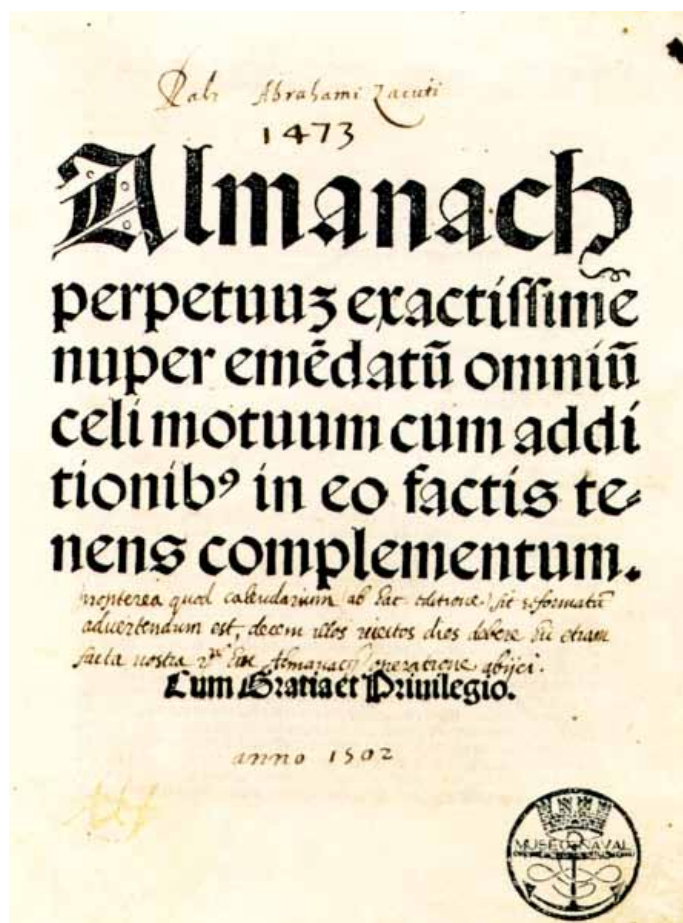 Rab Abrahami Zacuti
1473
Almanach
perpetuuʒ exactissime᷑
nuper emēdatū omniū
celi motuum cum addi
tionibꝰ in eo factis te⸗
nens complementum.
propterea quod calendarium ab hac editione sit reformatū
advertendum est, decem illos rejectos dies debere in etiam
facta nostra hoc Almanach operatione abijci.
Cum Gratia et Privilegio.
anno 1502
MUSEO NAVAL